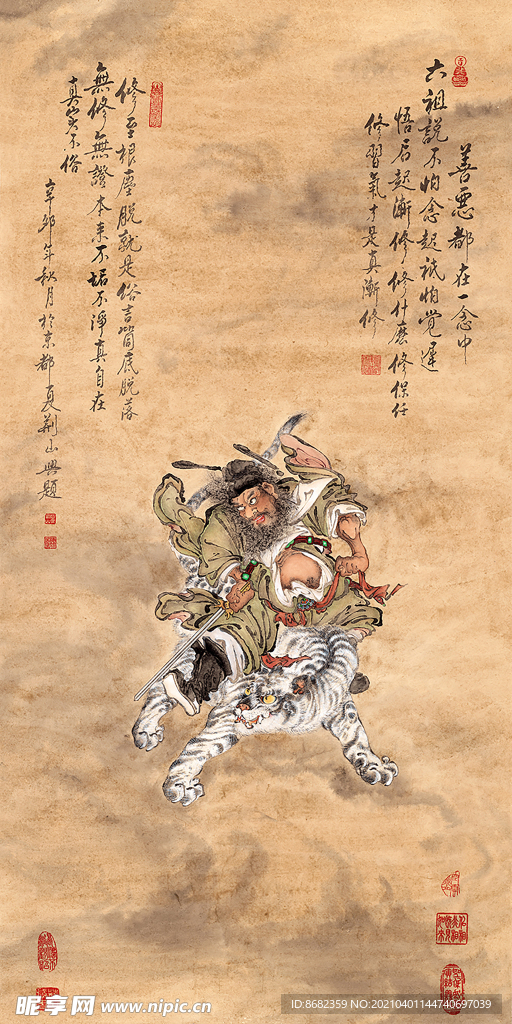 善惡都在一念中
六祖説不怕念起祇怕覺遲
悟后起漸修修什麽修保任
修習氣才是真漸修
修至根塵脱就是俗言筒底脱落
無修無證本来不垢不淨真自在
真實不俗
辛卯年秋月於京都夏荆山興題
昵享网 www.nipic.cn
ID:8682359 NO:20210401144740697039